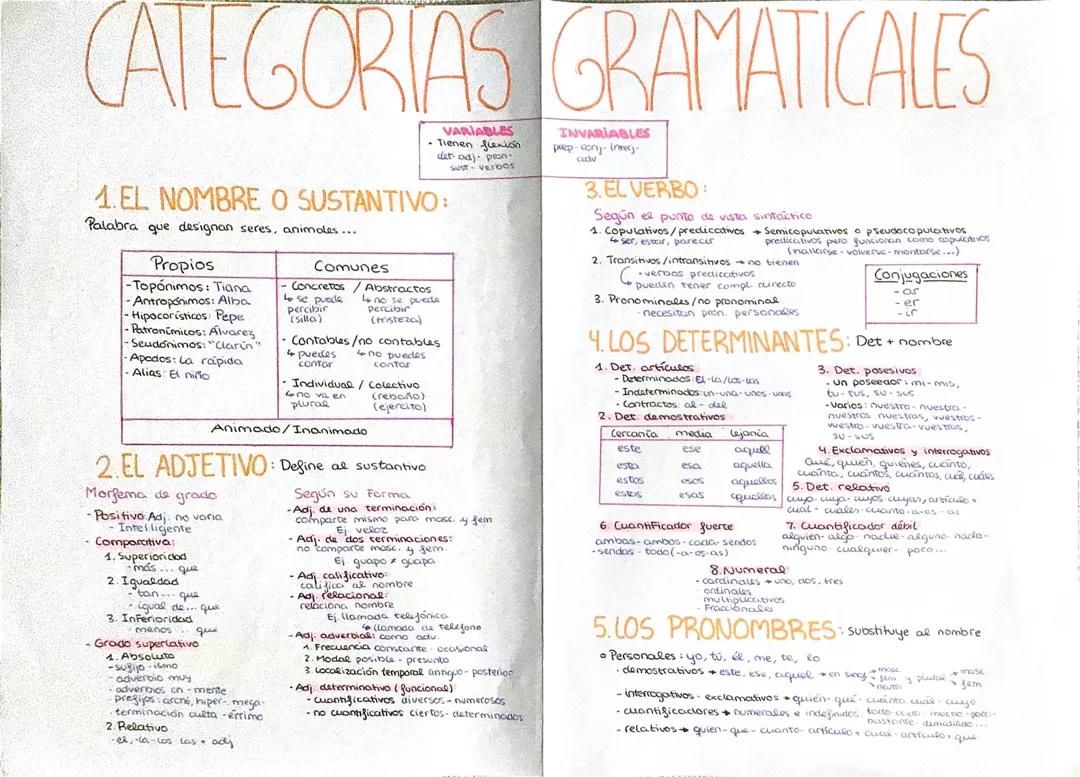 CATEGORÍAS GRAMATICALES
VARIABLES
• Tienen flexión
det-adj-pron-
sust-verbos
INVARIABLES
prep-conj-interj-
adv
1. EL NOMBRE O SUSTANTIVO:
Palabra que designan seres, animales...
Propios
- Topónimos: Tiana
- Antropónimos: Alba
- Hipocorísticos: Pepe
- Patronímicos: Álvarez
- Seudónimos: "Clarín"
- Apodos: La rápida
- Alias: El niño
Comunes
- Concretos / Abstractos
↳ se puede percibir (silla)
↳ no se puede percibir (tristeza)
- Contables / no contables
↳ puedes contar
↳ no puedes contar
- Individual / Colectivo
↳ no va en plural
(rebaño) (ejercito)
Animado / Inanimado
2. EL ADJETIVO: Define al sustantivo
Morfema de grado
- Positivo: Adj. no varia
- Intelligente
- Comparativa:
1. Superioridad
- más ... que
2. Igualdad
- tan ... que
- igual de ... que
3. Inferioridad
- menos ... que
- Grado superlativo
1. Absoluto
- sufijo -ísmo
- adverbio muy
- adverbios en -mente
prefijos: arché, hiper-mega-
terminación culta -érrimo
2. Relativo
- el, -la-los las + adj
Según su Forma
- Adj. de una terminación:
comparte mismo para masc. y fem
Ej. veloz
- Adj. de dos terminaciones:
no comparte masc. y fem.
Ej. guapo ≠ guapa
- Adj. calificativo:
califica al nombre
- Adj. relacional:
relaciona nombre
Ej. llamada telefónica
↳ llamada de telefono
- Adj. adverbial: como adv.
1. Frecuencia constante - ocasional
2. Modal posible - presunto
3. Localización temporal antiguo - posterior
- Adj. determinativo (funcional)
- cuantificativos diversos - numerosos
- no cuantificativos ciertos - determinados
3. EL VERBO:
Según el punto de vista sintáctico
1. Copulativos / predicativos → Semicopulativos o pseudocopulativos
↳ ser, estar, parecer
predicativos pero funcionan como copulativos
(hallarse - volverse - montarse...)
2. Transitivos / intransitivos → no tienen
• verbos predicativos
pueden tener compl. directo
3. Pronominales / no pronominal
- necesitan pron. personales
Conjugaciones
- ar
- er
- ir
4. LOS DETERMINANTES: Det + nombre
1. Det. artículos
- Determinados: El-la/los-las
- Indeterminados: un-una-unos-unas
- Contractos: al - del
2. Det. demostrativos
Cercanía media lejanía
este ese aquel
esta esa aquella
estos esos aquellos
estas esas aquellas
3. Det. posesivos
- un poseedor: mi-mis,
tu-tus, su-sus
- Varios: nuestro-nuestra-
nuestros nuestras, vuestros-
vuestro-vuestra-vuestras,
su-sus
4. Exclamativos y interrogativos
Qué, quién, quiénes, cuánto,
cuánta, cuántos, cuántas, cuál, cuáles
5. Det. relativo
cuyo-cuya-cuyos-cuyas, artículo +
cual - cuales-cuanto-a-os-as
6. Cuantificador fuerte
ambas-ambos-cada-sendos
-sendas-todo(-a-os-as)
7. Cuantificador débil
alguien-algo-nadie-alguno-nada-
ninguno-cualquier-poco...
8. Numeral
- cardinales → uno, dos, tres
- ordinales
multiplicativos
- Fraccionales
5. LOS PRONOMBRES: Substituye al nombre
• Personales: yo, tú, él, me, te, lo
• demostrativos → este, ese, aquel → en sing → masc fem neutro y plural → masc fem
- interrogativos-exclamativos → quién-qué-cuánto cuál-cuyo
- cuantificadores → numerales e indefinidos: todo-mucho-poco-
bastante-demasiado...
- relativos → quien-que-cuanto-artículo + cual-artículo + que